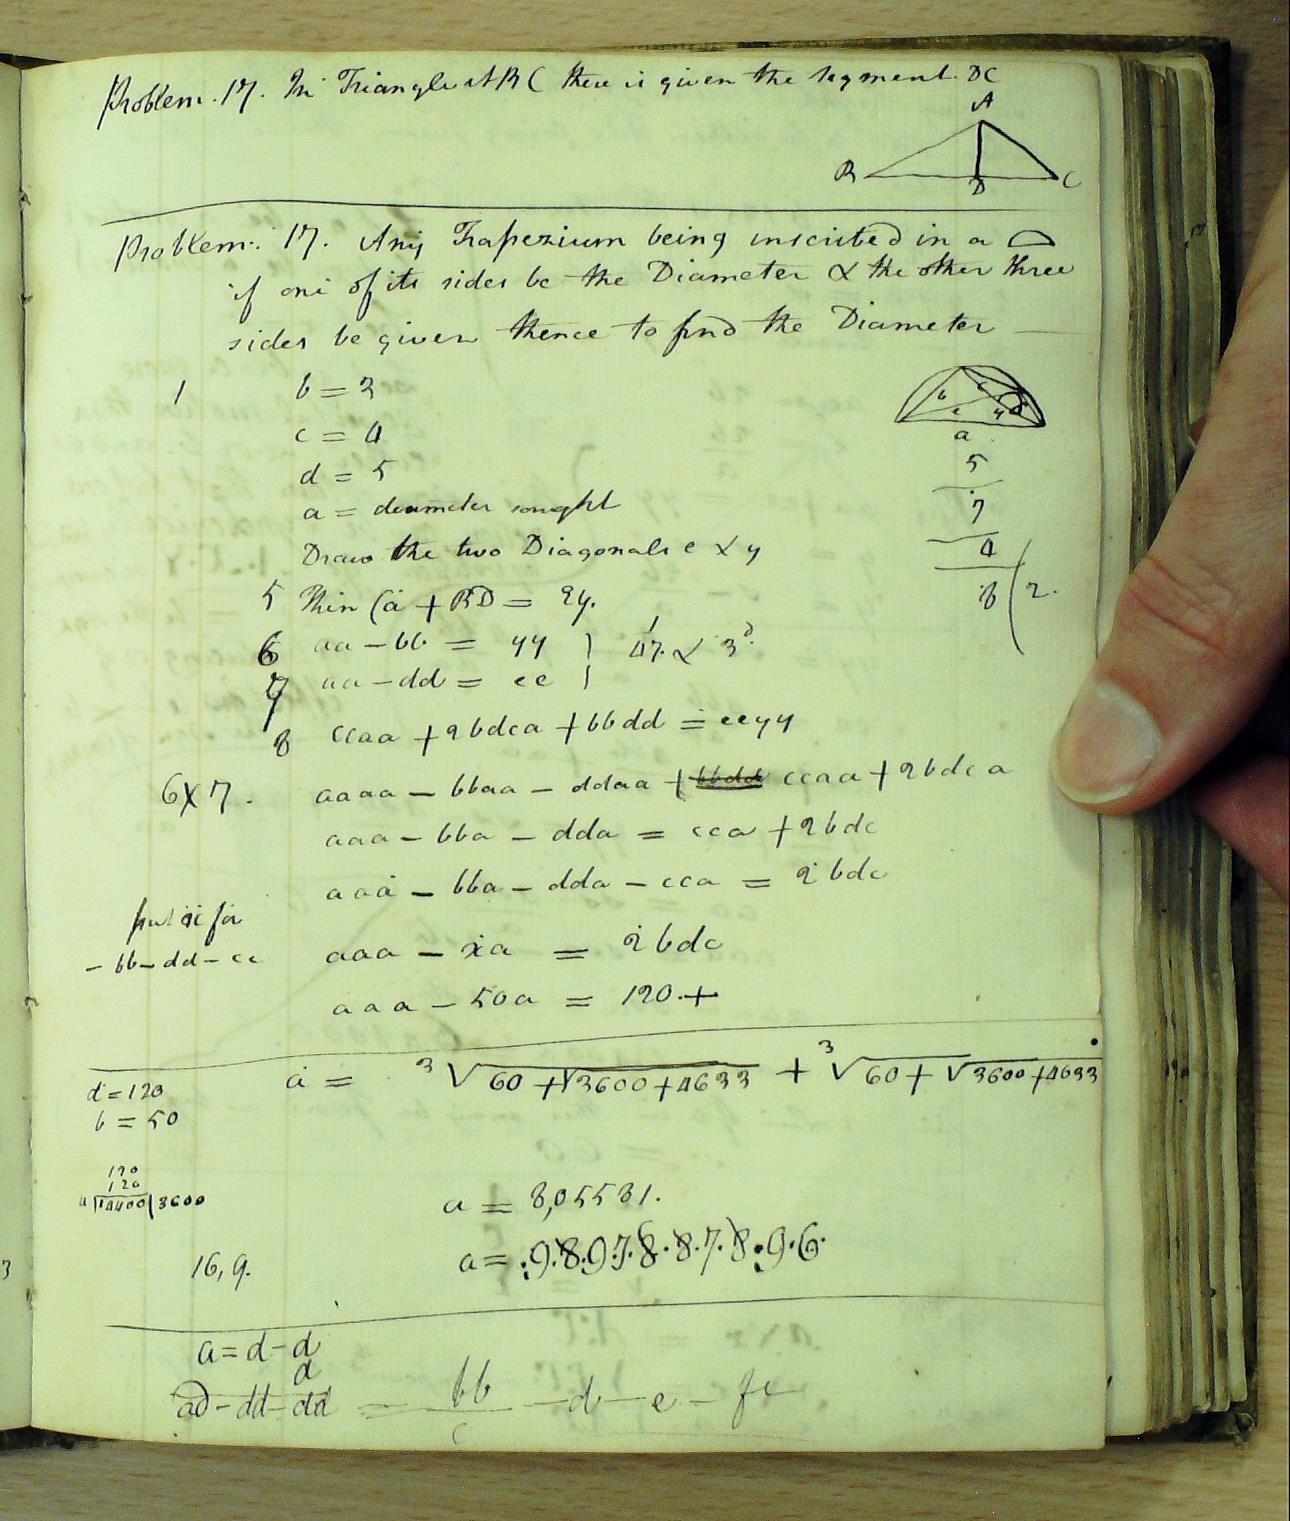 Problem. 17. In Triangle ABC there is given the segment. DC
A
B D C
Problem. 17. Any Trapezium being inscribed in a
if one of its sides be the Diameter & the other three
sides be given thence to find the Diameter
1 b = 3
c = 4
d = 5
a = diameter sought
Draw the two Diagonals e & y
b c e y
a
5
7
4
8 ( 2.
5 Then Ca + BD = ey.
6 aa - bb = yy
7 aa - dd = ee
8 ccaa + 2bdca + bbdd = eeyy
6X7. aaaa - bbaa - ddaa + ccaa + 2bdca
aaa - bba - dda = cca + 2bdc
aaa - bba - dda - cca = 2bdc
put x for
- bb - dd - cc
aaa - xa = 2bdc
aaa - 50a = 120.+
a = 3√60 + √3600+4633 + 3√60 + √3600+4633
d = 120
b = 50
120
120
4 14400 3600
a = 8,05531.
16,9.
3
a = d - d
d
ad - dd - dd = bb - d - e - fc
c